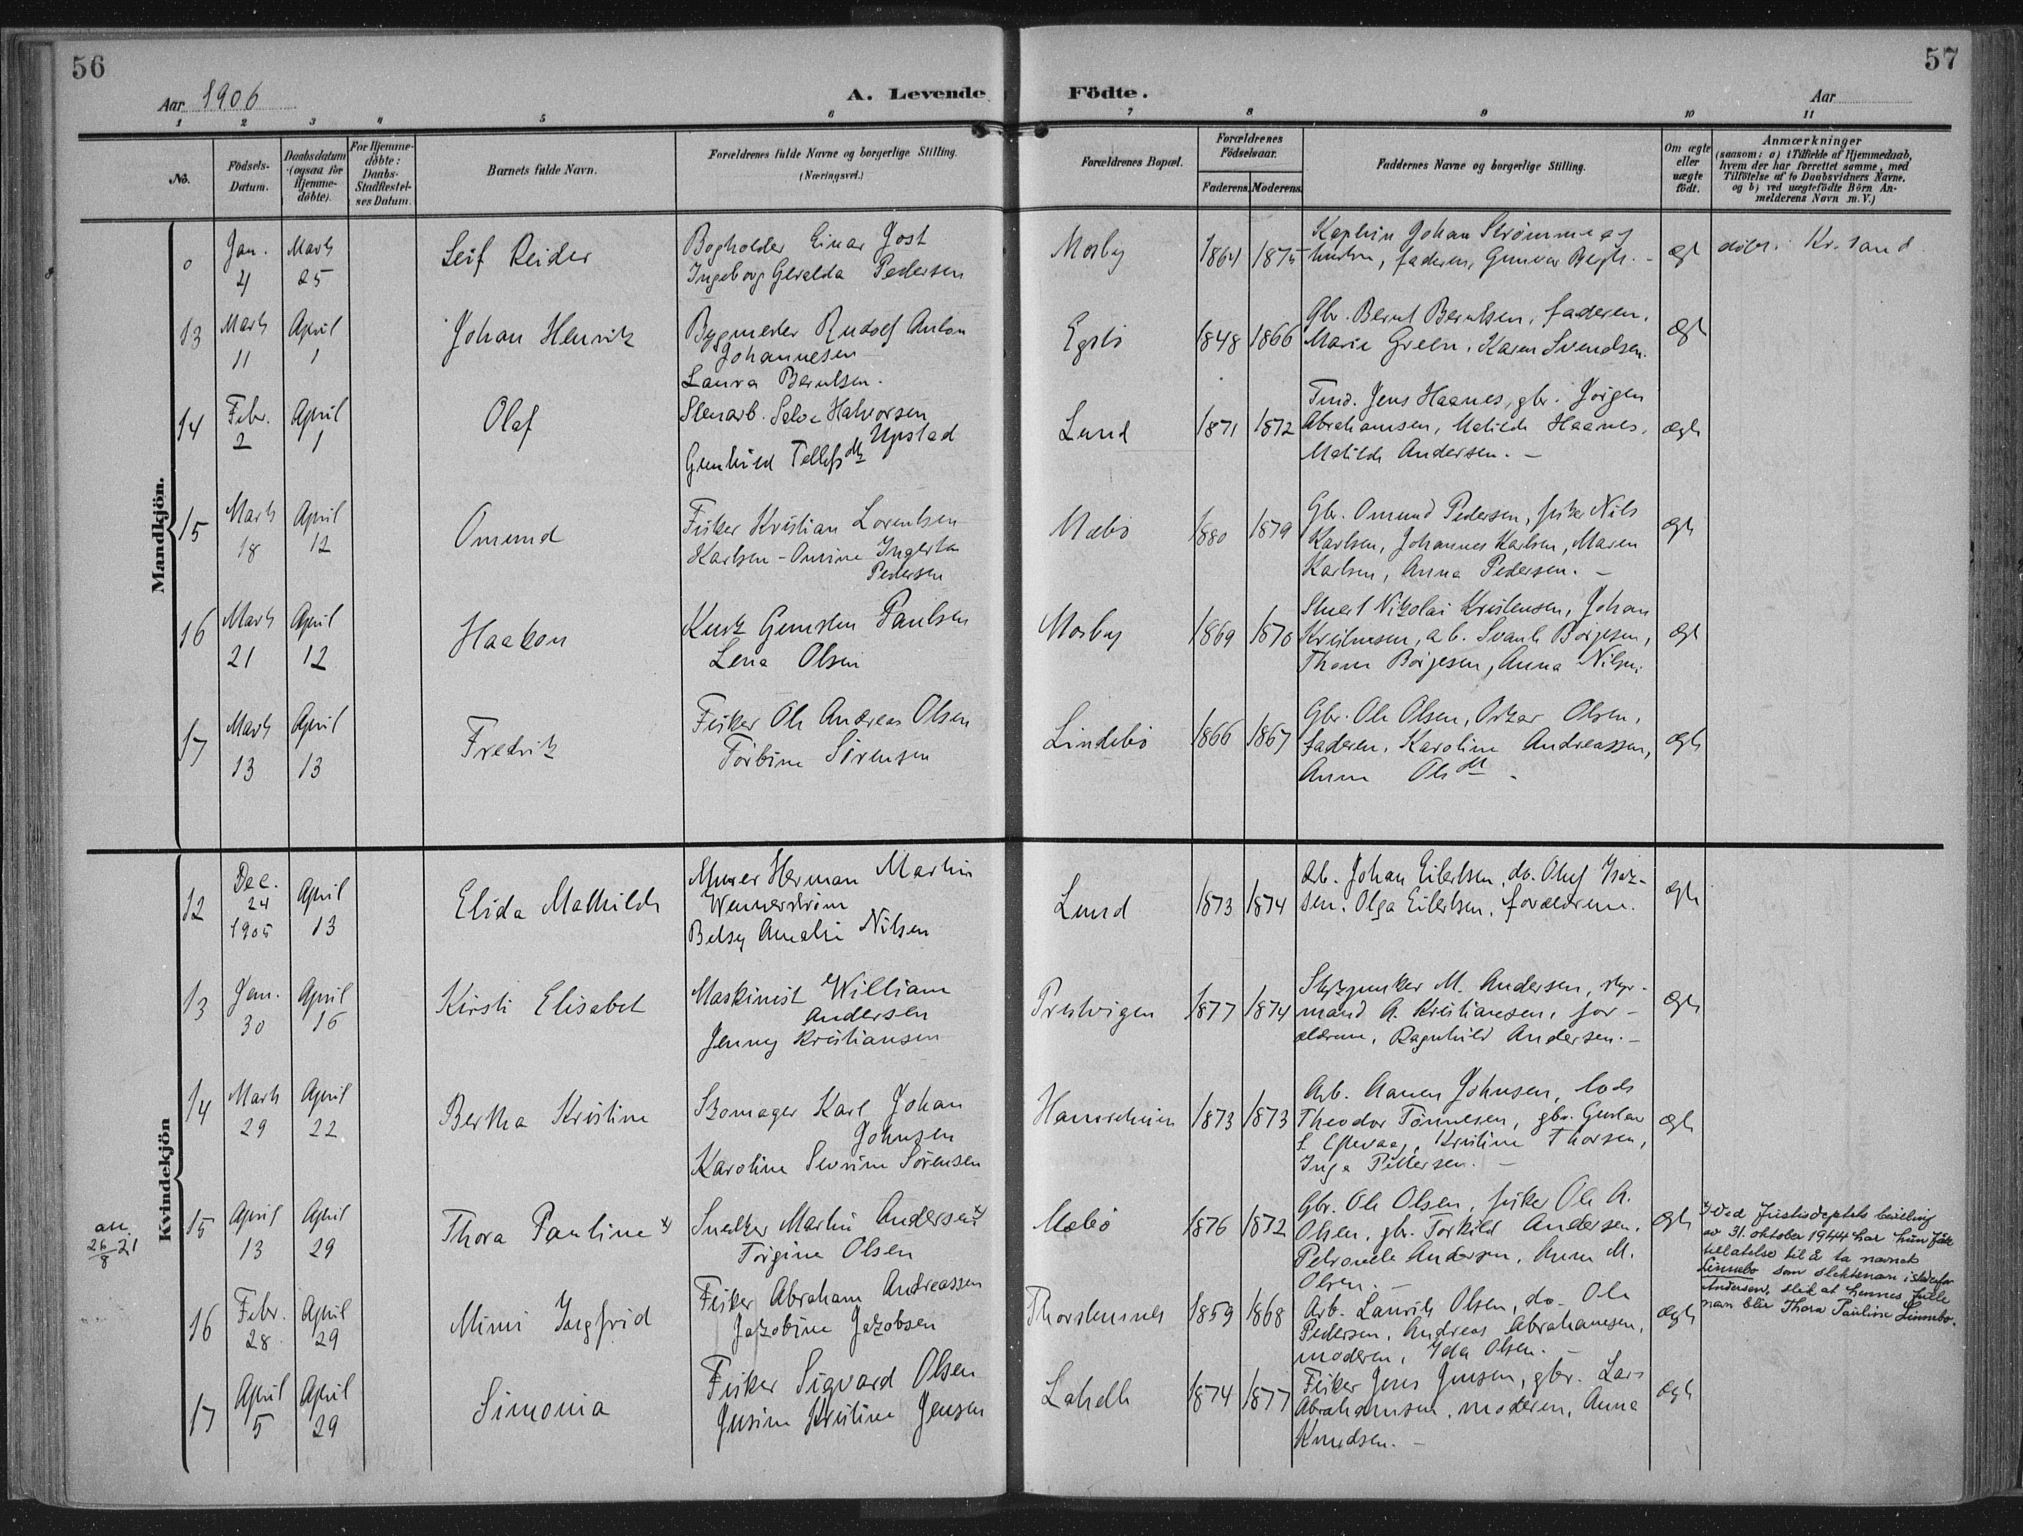 56
57
Aar 1906
A. Levende Födte.
Aar
1 2 3 4 5 6 7 8 9 10 11
No.
Födsels-Datum.
Daabsdatum (ogsaa for Hjemme-døbte).
For Hjemme-døbte: Daabs-Stadfæstel-ses Datum.
Barnets fulde Navn.
Forældrenes fulde Navne og borgerlige Stilling.
(Næringsvei.)
Forældrenes Bopæl.
Forældrenes Födselsaar.
Faderens. Moderens.
Faddernes Navne og borgerlige Stilling.
Om ægte eller uægte født.
Anmærkninger
(saasom: a) i Tilfælde af Hjemmedaab, hvem der har forrettet samme, med Tilføielse af to Daabsvidners Navne, og b) ved uægtefödte Börn An-melderens Navn m. V.)
Mandkjön.
0 Jan. 4 Marts 25 Leif Reider Bogholder Einar Jost
Ingeborg Geralda Pedersen
Mosby 1864 1875 Kaptein Johan Strømme og
hustru, faderen, Gunvor Begh. - ægt døbt i Kr.sand
13 Marts 11 April 1 Johan Henrik Bygmester Rudolf Anton
Johannesen
Laura Berntsen.
Egsbø 1848 1866 Gbr. Bernt Berntsen, faderen,
Marie Green, Karen Svendsen. ægt
14 Febr. 2 April 1 Olaf Stenarb. Salve Halvorsen
Upstad
Gunhild Tellefsdtr
Lund 1871 1872 Tind. Jens Haanes, gbr. Jørgen
Abrahamsen, Matilde Haanes,
Matilde Andersen. - ægte
15 Marts 18 April 12 Omund Fisker Kristian Lorentsen
Karlsen - Omine Ingerta
Pedersen
Mæbø 1880 1879 Gbr. Omund Pedersen, fisker Nils
Karlsen, Johannes Karlsen, Maren
Karlsen, Anna Pedersen. - ægte
16 Marts 21 April 12 Haakon Kusk Gunsten Paulsen
Lena Olsen
Mosby 1869 1870 Stuert Nikolai Kristensen, Johan
Kristensen, a.b. Svante Børjesen,
Thea Børjesen, Anna Nilsen. ægt
17 Marts 13 April 13 Fredrik Fisker Ole Andreas Olsen
Torbine Sørensen
Lindebø 1866 1867 Gbr. Ole Olsen, Oskar Olsen,
faderen, Karoline Andreassen,
Anne Olsdtr. ægte
Kvindekjön
12 Dec. 24 1905 April 13 Elida Mathilde Murer Herman Martin
Wennerstrøm
Betsy Amalie Nilsen
Lund 1873 1874 Arb. Johan Eilertsen, do. Oluf Isak-
sen, Olga Eilertsen, forældrene. ægte
13 Jan. 30 April 16 Kirsti Elisabet Maskinist William
Andersen
Jenny Kristiansen
Prestvigen 1877 1874 Stykjunker M. Andersen, styr-
mand A. Kristiansen, for-
ældrene, Ragnhild Andersen. - ægte
14 Marts 29 April 22 Bertha Kristine Skomager Karl Johan
Johnsen
Karoline Severine Sørensen
1873 1873 Arb. Aanen Johnsen, lods
Theodor Tønnesen, gbr. Gustav
S. Eftevaag, Kristine Thorsen,
Inga Pettersen. - ægte
att. 26/8 21
15 April 13 April 29 Thora Pauline x) Snedker Martin Andersen x)
Torgine Olsen
Mæbø 1876 1872 Gbr. Ole Olsen, fisker Ole A.
Olsen, gbr. Torkild Andersen,
Petronelle Andersen, Anne M.
Olsen. - ægte
x) Ved Justisdeptets bevilling
av 31. oktober 1944 har hun fått
tillatelse til å ta navnet
Linnebo som slektsnavn istedenfor
Andersen, slik at hennes fulle
navn blir Thora Pauline Linnebo.
16 Febr. 28 April 29 Mimi Ingfrid Fisker Abraham Andreassen
Jakobine Jakobsen
Thorstensnes 1859 1868 Arb. Laurits Olsen, do. Ole
Pedersen, Andreas Abrahamsen,
moderen, Ida Olsen. - ægte
17 April 5 April 29 Simonia Fisker Sigvard Olsen
Jusine Kristine Jensen
Lahelle 1874 1877 Fisker Jens Jensen, gbr. Lars
Abrahamsen, moderen, Anna
Knudsen. - ægte